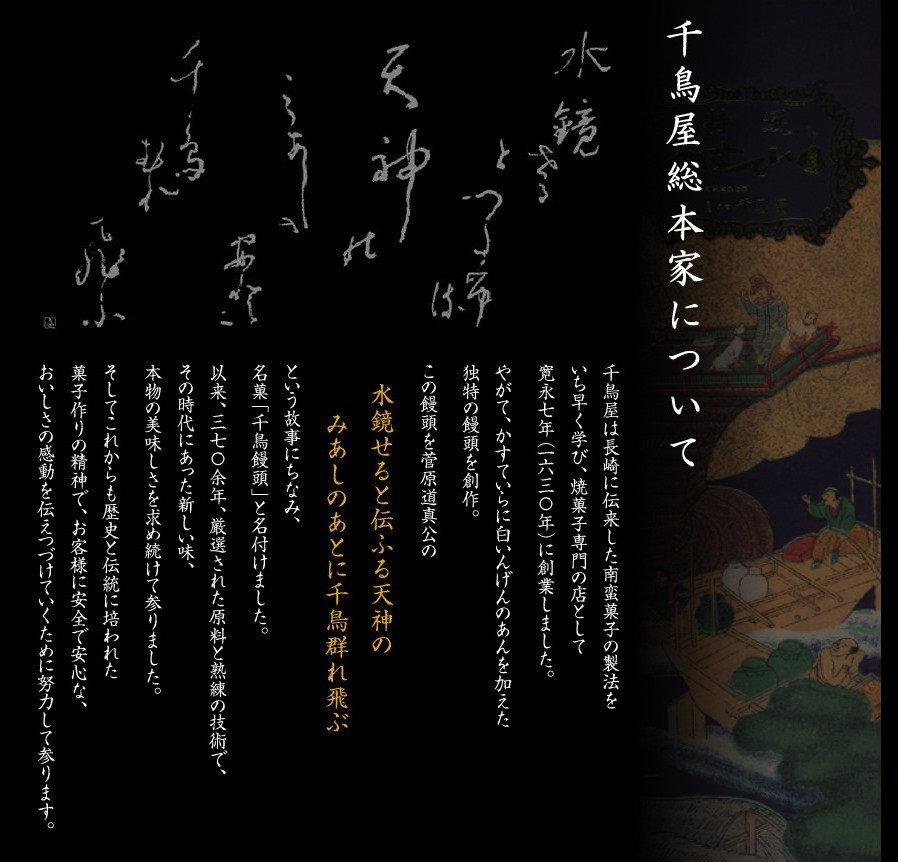 千鳥屋総本家について
水鏡せる
とつたふ
天神の
みあしの
安登に
千鳥むれ
飛ふ
千鳥屋は長崎に伝来した南蛮菓子の製法を
いち早く学び、焼菓子専門の店として
寛永七年（一六三〇年）に創業しました。
やがて、かすていらに白いんげんのあんを加えた
独特の饅頭を創作。
この饅頭を菅原道真公の
水鏡せると伝ふる天神の
みあしのあとに千鳥群れ飛ぶ
という故事にちなみ、
名菓「千鳥饅頭」と名付けました。
以来、三七〇余年、厳選された原料と熟練の技術で、
その時代にあった新しい味、
本物の美味しさを求め続けて参りました。
そしてこれからも歴史と伝統に培われた
菓子作りの精神で、お客様に安全で安心な、
おいしさの感動を伝えつづけていくために努力して参ります。